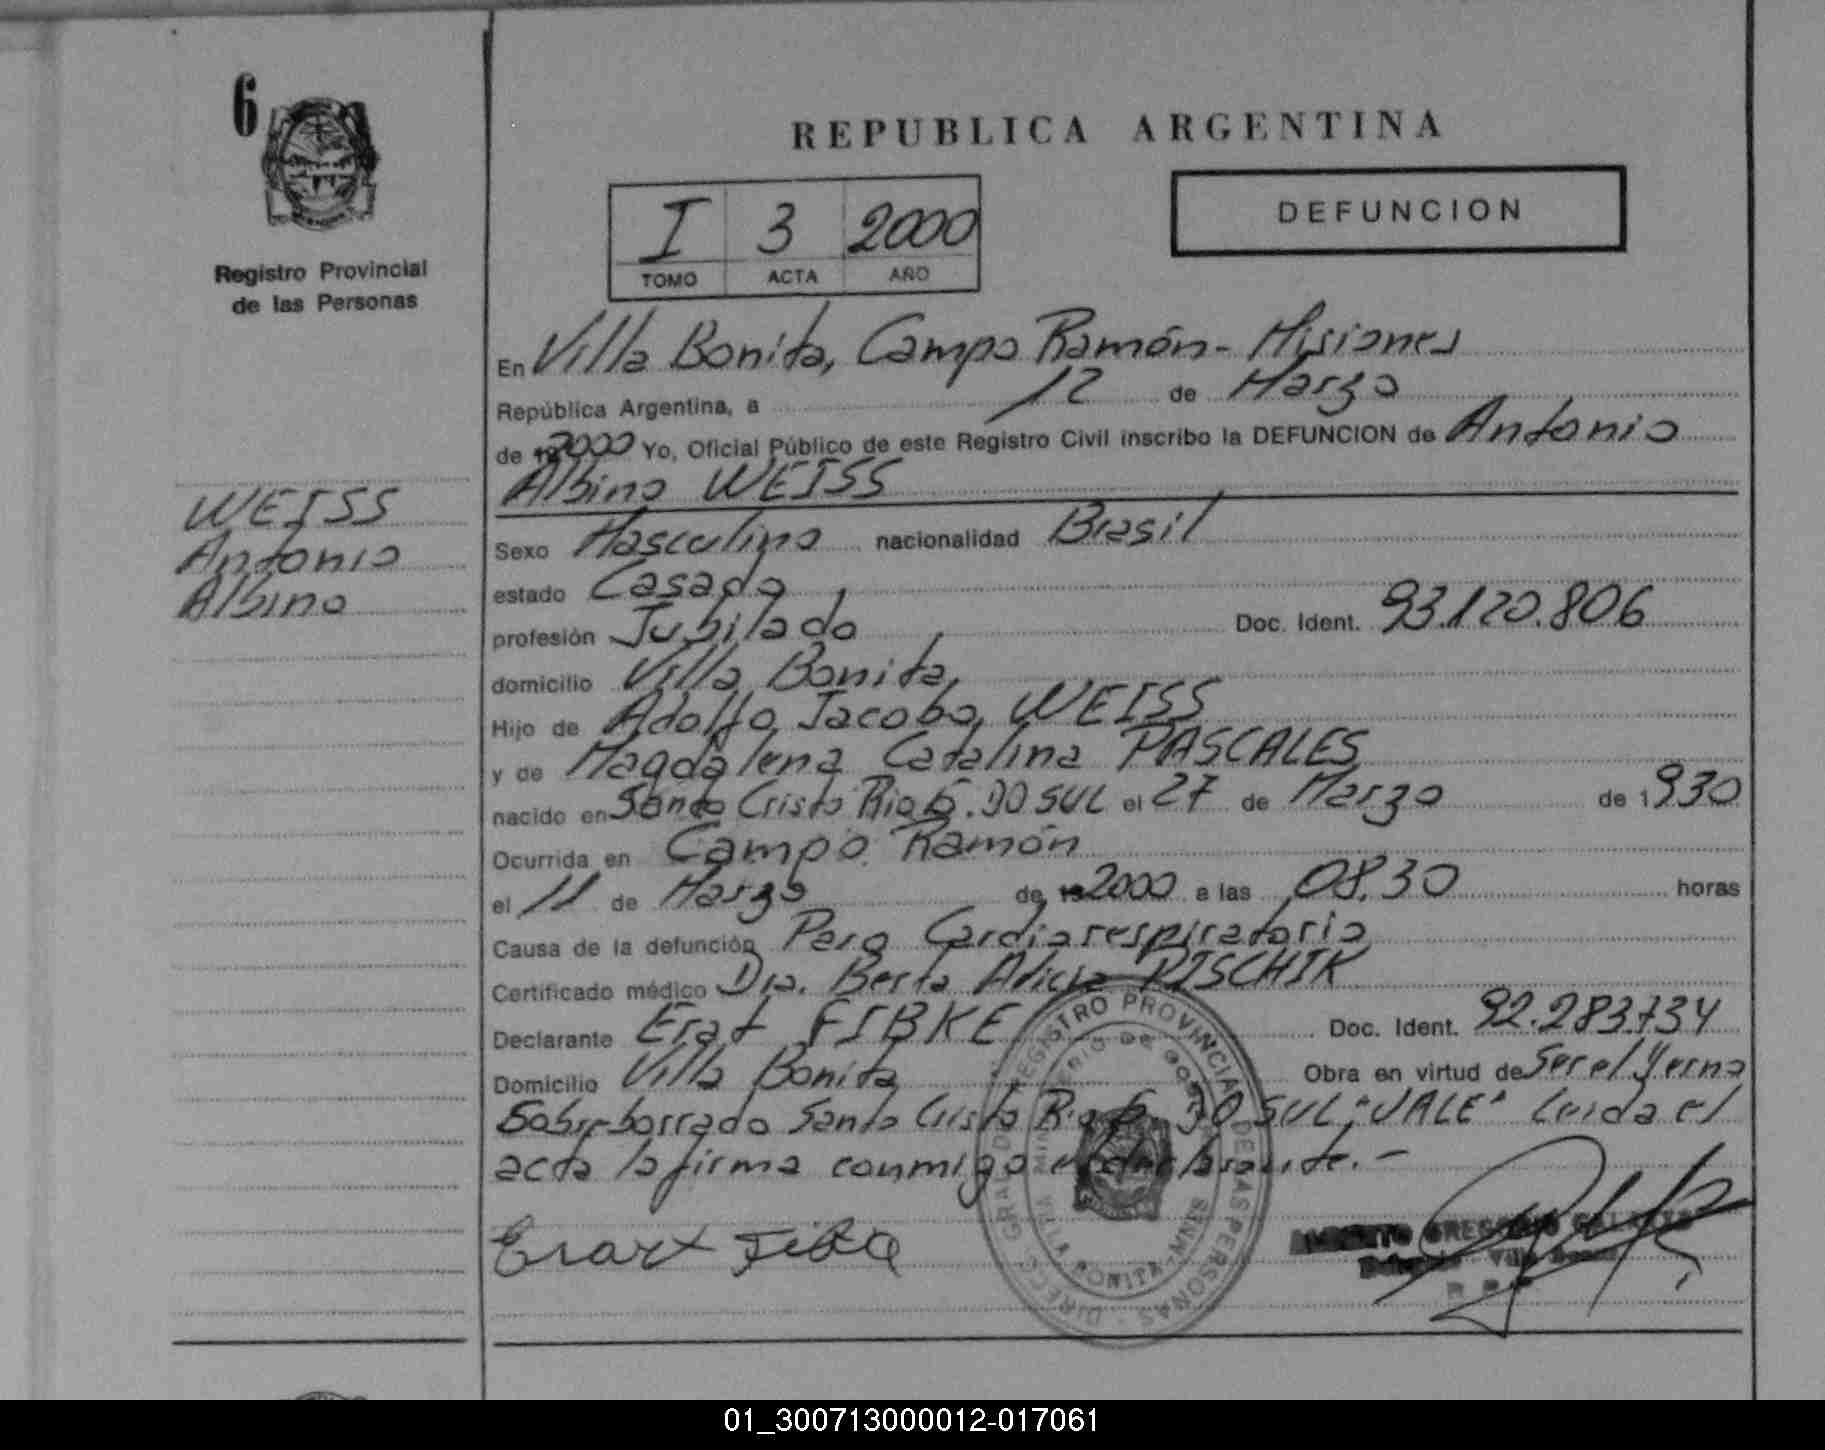 6
REPUBLICA ARGENTINA
I 3 2000
TOMO ACTA AÑO
DEFUNCION
Registro Provincial
de las Personas
WEISS
Antonio
Albino
En Villa Bonita, Campo Ramón - Misiones
República Argentina, a 12 de Marzo
de 2000 Yo, Oficial Público de este Registro Civil inscribo la DEFUNCION de Antonio
Albino WEISS
Sexo Masculino nacionalidad Brasil
estado Casado
profesión Jubilado Doc. Ident. 93.120.806
domicilio Villa Bonita
Hijo de Adolfo Jacobo WEISS
y de Magdalena Catalina PASCALES
nacido en Santo Cristo Rio G. DO SUL el 27 de Marzo de 1930
Ocurrida en Campo Ramón
el 11 de Marzo de 2000 a las 08.30 horas
Causa de la defunción Paro Cardiorespiratorio
Certificado médico Dra. Berta Alicia RISCHIK
Declarante Erat FIBKE Doc. Ident. 92.283.734
Domicilio Villa Bonita Obra en virtud de Ser el Yerno
Sobreborrado Santo Cristo Rio G. DO SUL "VALE" Leida el
acta la firma conmigo el declarante. -
DIRECC. GRAL. DE REGISTRO PROVINCIAL DE LAS PERSONAS
MINISTERIO DE
VILLA BONITA - MNES
GREGORIO
01_300713000012-017061